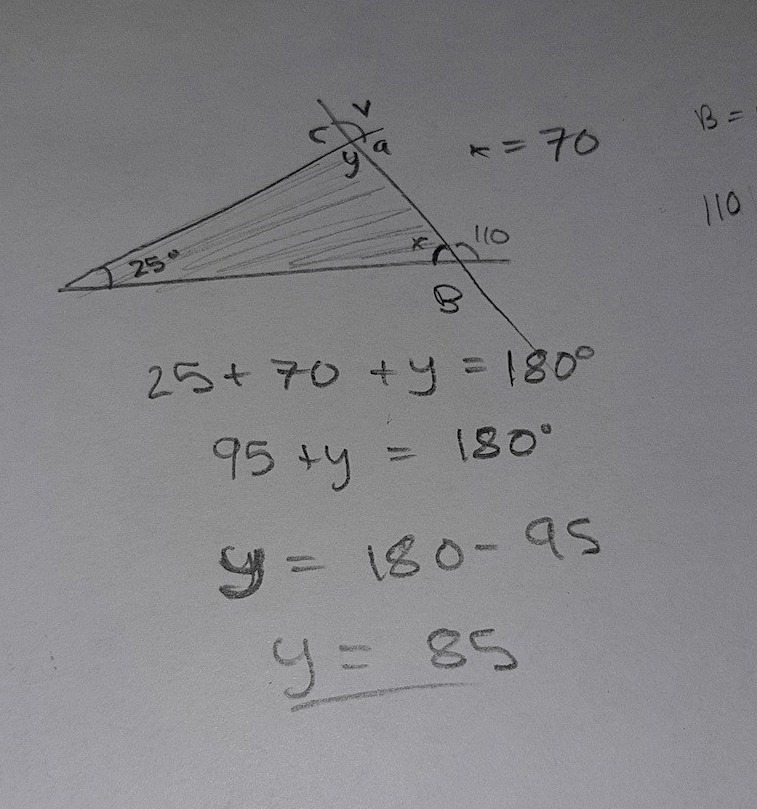 c v
y a
x = 70
B =
25°
x 110
110
B
25 + 70 + y = 180°
95 + y = 180°
y = 180 - 95
y = 85